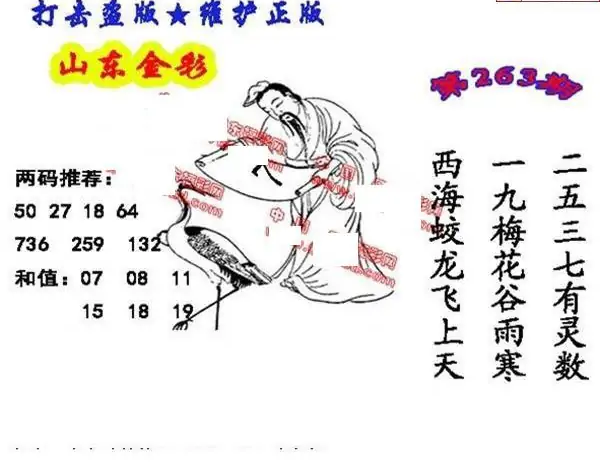 打击盗版★维护正版
山东金彩
第263期
两码推荐：
50 27 18 64
736 259 132
和值：07 08 11
15 18 19
二五三七有灵数
一九梅花谷雨寒
西海蛟龙飞上天